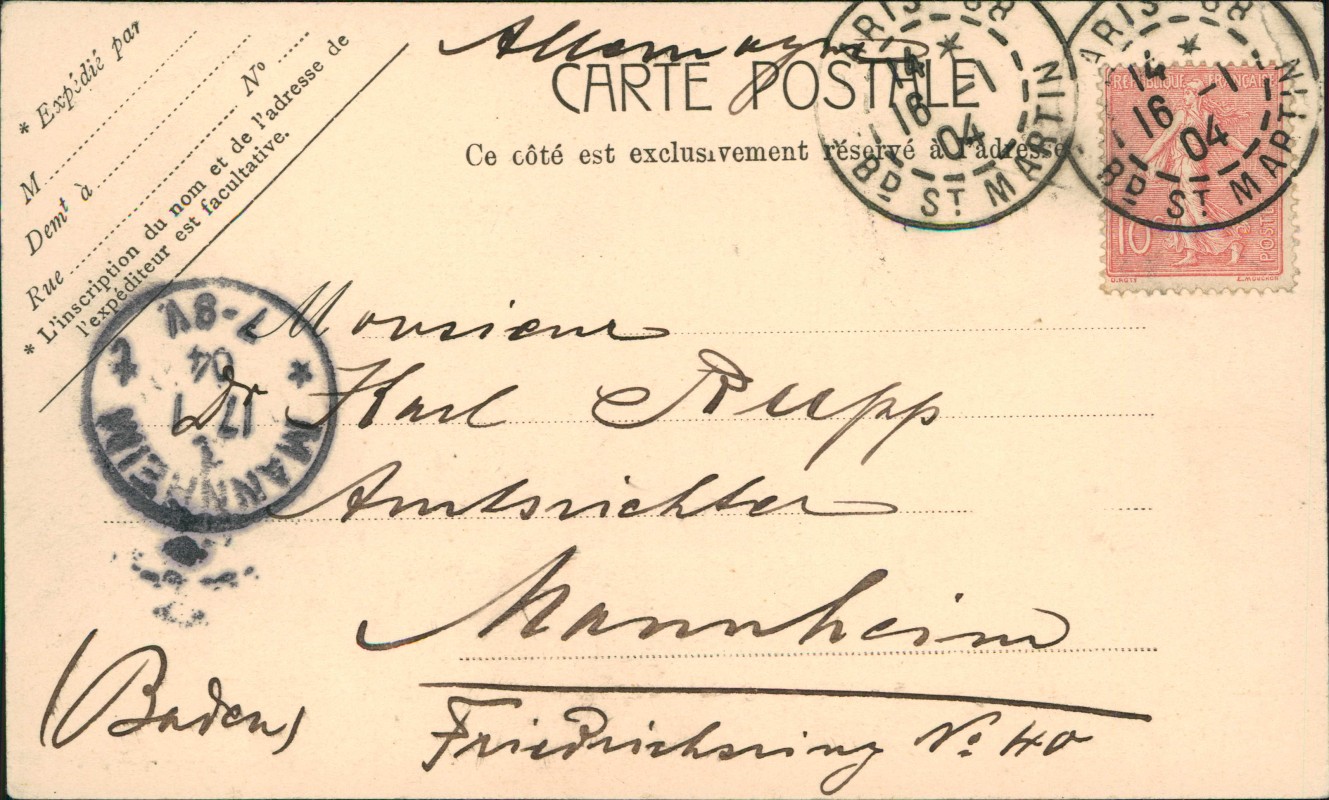 * Expédié par
M
Demt à Nº
Rue
* L'inscription du nom et de l'adresse de
l'expéditeur est facultative.
Allemagne
CARTE POSTALE
Ce côté est exclusivement réservé à l'adresse
PARIS 68
14
16 - 1
04
BD ST. MARTIN
PARIS 68
14
16 - 1
04
BD ST. MARTIN
REPUBLIQUE FRANÇAISE
10
POSTES
O. ROTY
E. MOUCHON
* MANNHEIM 2 *
17 1
04
7-8V
Monsieur
Dr Karl Rupp
Amtsrichter
Mannheim
(Baden)
Friedrichsring No 40